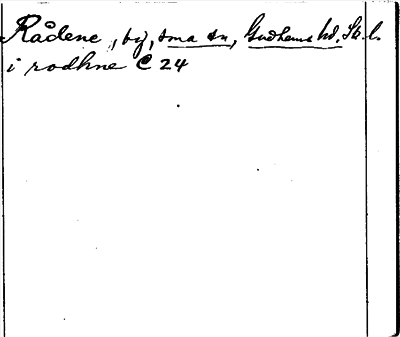 Rådene, by, sma sn, Gudhems hd. Sk. l.
i rodhne C 24